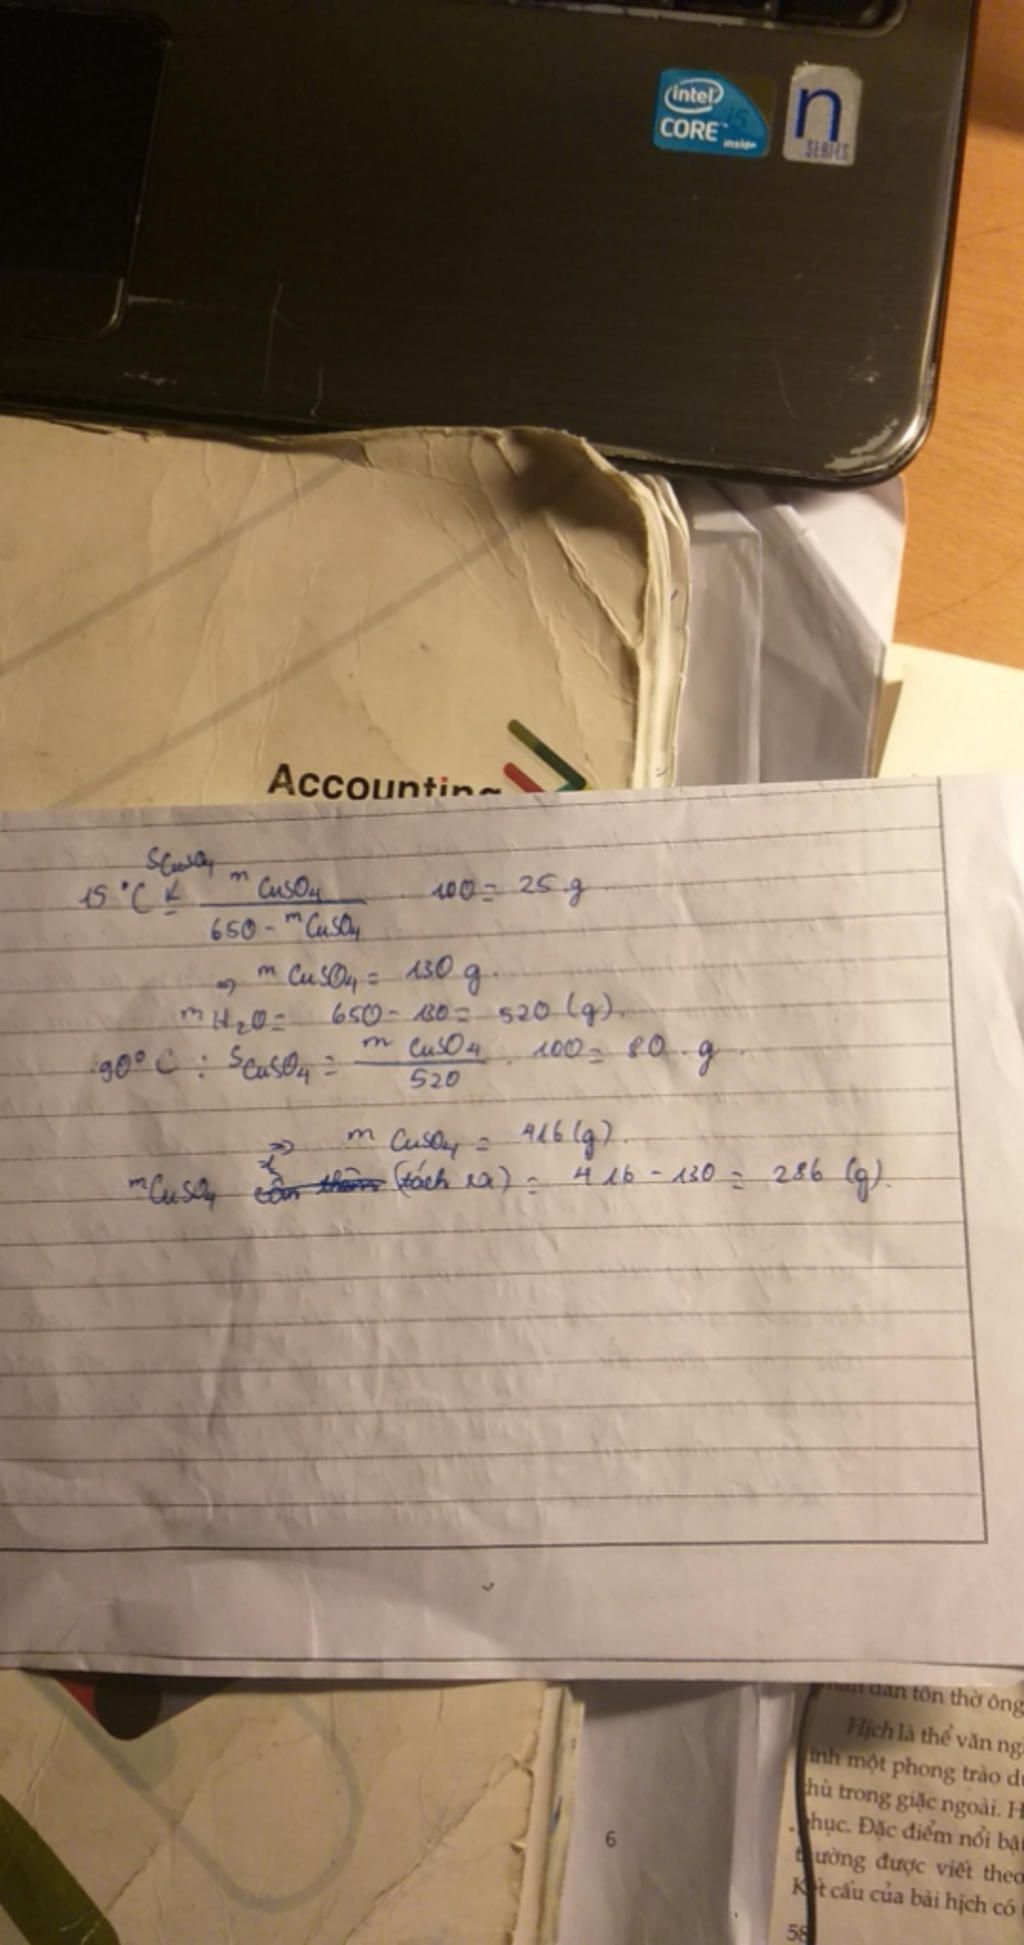 intel
CORE i5
inside
n
SERIES
Accounting
SCuSO4
15°C mCuSO4 / 650 - mCuSO4 . 100 = 25 g
⇒ mCuSO4 = 130 g.
mH2O = 650 - 130 = 520 (g).
90°C : SCuSO4 = mCuSO4 / 520 . 100 = 80 g
⇒ mCuSO4 = 416 (g).
mCuSO4 (tách ra) = 416 - 130 = 286 (g).
dân tôn thờ ông
Hịch là thể văn
một phong trào
thù trong giặc ngoài. H
phục. Đặc điểm nổi
thường được viết theo
Kết cấu của bài hịch có
6
58